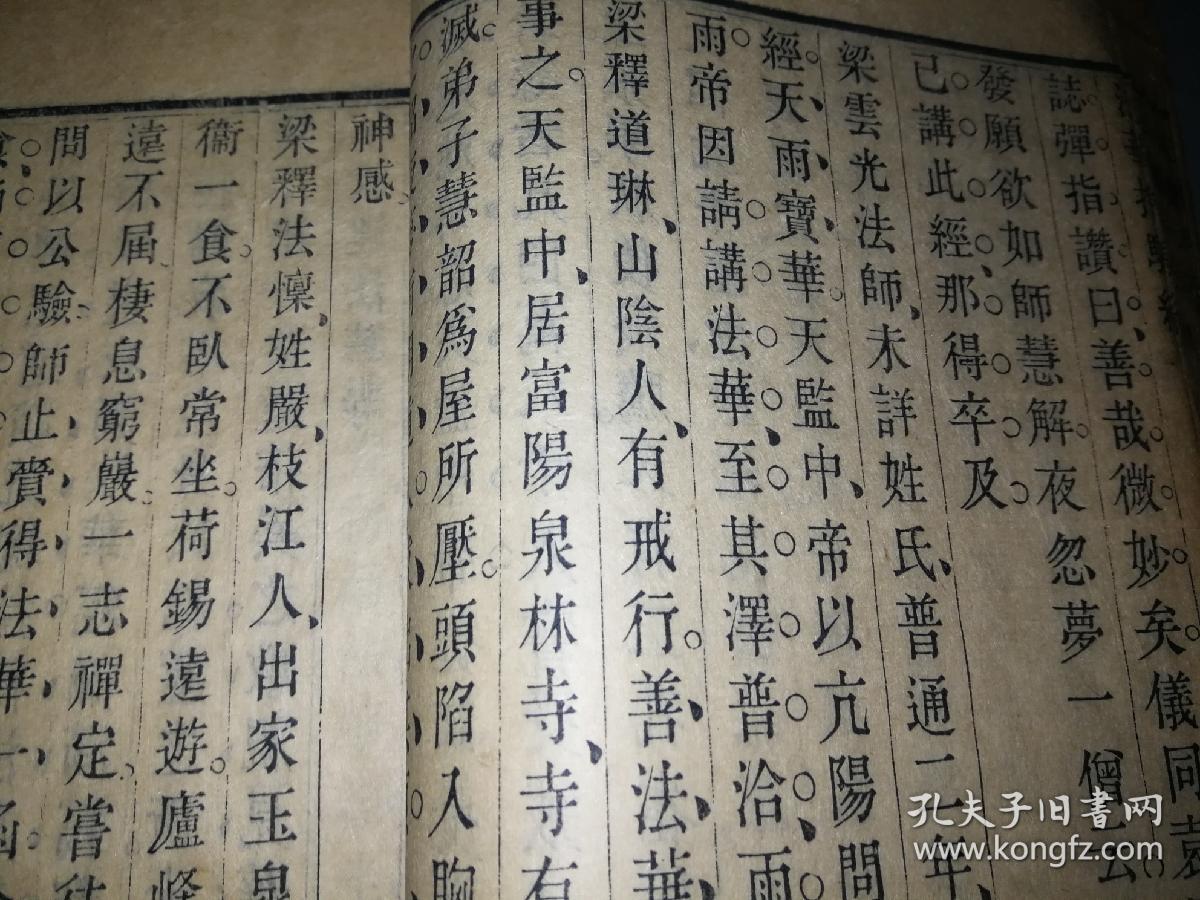 誌。彈指讚曰、善哉。微妙矣。儀同
發願欲如師慧解。夜忽夢一僧
已講此經、那得卒及
梁雲光法師、未詳姓氏、普通二年、
經天雨寶華。天監中、帝以亢陽問
雨。帝因請講法華、至其澤普洽、雨
梁釋道琳、山陰人、有戒行。善法華
事之。天監中、居富陽泉林寺、寺有
滅。弟子慧韶爲屋所壓。頭陷入胸
神感
梁釋法懍、姓嚴、枝江人、出家玉泉
衞一食。不臥常坐。荷錫遠遊。廬峰
遠不屆。棲息窮巖。一志禪定。嘗
問以公驗、師止賷得法華一函
孔夫子旧书网
www.kongfz.com